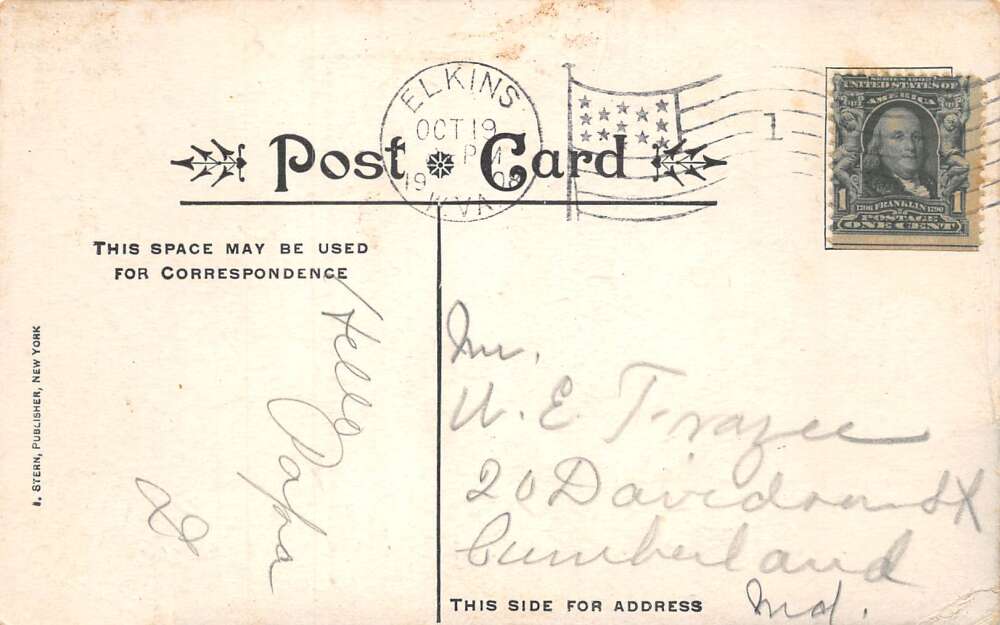 ELKINS
OCT 19
PM
19 08
W.VA.
1
SERIES 1902
UNITED STATES OF
AMERICA
1706 FRANKLIN 1790
1 POSTAGE 1
ONE CENT
Post Card
THIS SPACE MAY BE USED
FOR CORRESPONDENCE
THIS SIDE FOR ADDRESS
I. STERN, PUBLISHER, NEW YORK
Hello
Papa
Mr.
W. E Frazee
20 Davidson St
Cumberland
Md.